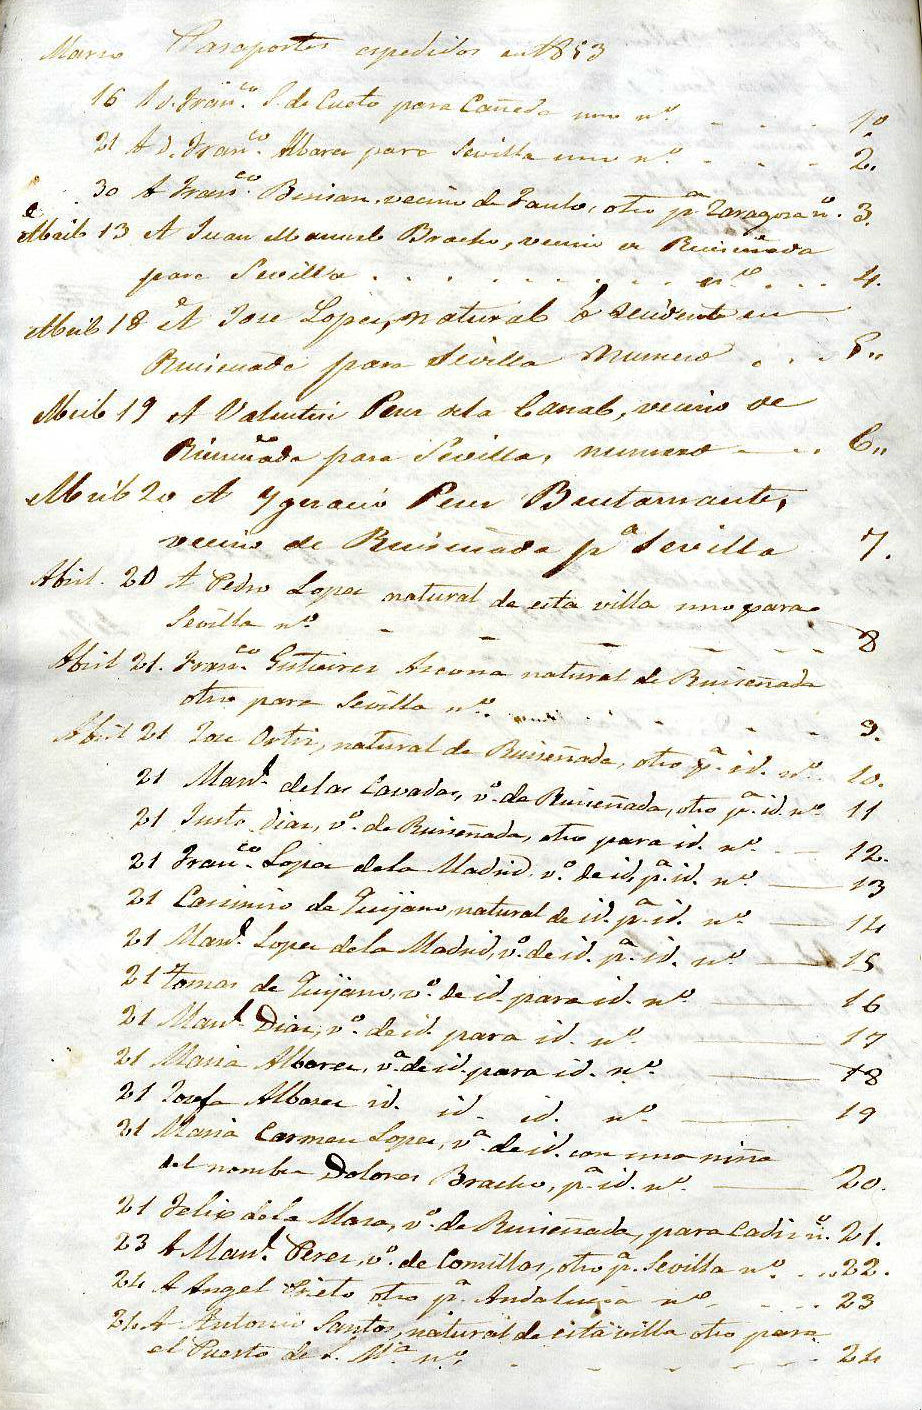 Marzo Pasaportes espedidos en 1853
16 A D. Franco. S. de Cueto para Cañeda uno no. 1o.
21 A D. Franco. Albarez para Sevilla uno no. 2.
30 A Franco. vecino de otro pa. Zaragoza no. 3.
Abril 13 A Juan Manuel Bracho, vecino de Ruiseñada
para Sevilla no. 4.
Abril 18 A Jose Lopez, natural y residente en
Ruiseñada para Sevilla numero 5.
Abril 19 A Valentin Perez de la Canal, vecino de
Ruiseñada para Sevilla, numero 6.
Abril 20 A Ygnacio Perez Bustamante,
vecino de Ruiseñada pa. Sevilla 7.
Abril. 20 A Pedro Lopez natural de esta villa uno para
Sevilla no. 8
Abril 21. Franco. Gutierrez Ascona natural de Ruiseñada
otro para Sevilla no. 9.
Abril 21 Jose Ortiz, natural de Ruiseñada, otro pa. id. no. 10.
21 Manl. de las Cavadas, vo. de Ruiseñada, otro pa. id. no. 11
21 Justo Diaz, vo. de Ruiseñada, otro para id. no. 12.
21 Franco. Lopez de la Madrid, vo. de id. pa. id. no. 13
21 Casimiro de Quijano, natural de id. pa. id. no. 14
21 Manl. Lopez de la Madrid, vo. de id. pa. id. no. 15
21 Tomas de Quijano, vo. de id. para id. no. 16
21 Manl. Diaz, vo. de id. para id. no. 17
21 Maria Albarez, va. de id. para id. no. 18
21 Josefa Albarez id. id. id. no. 19
21 Maria Carmen Lopez, va. de id. con una niña
del nombre Dolores Bracho, pa. id. no. 20.
21 Felix de la Maza, vo. de Ruiseñada, para Cadiz no. 21.
23 A Manl. Perez, vo. de Comillas, otro pa. Sevilla no. 22.
24 A Angel Prieto otro pa. Andalucia no. 23
24 A Antonio Santos, natural de esta villa otro para
el Puerto de S. Ma. no. 24